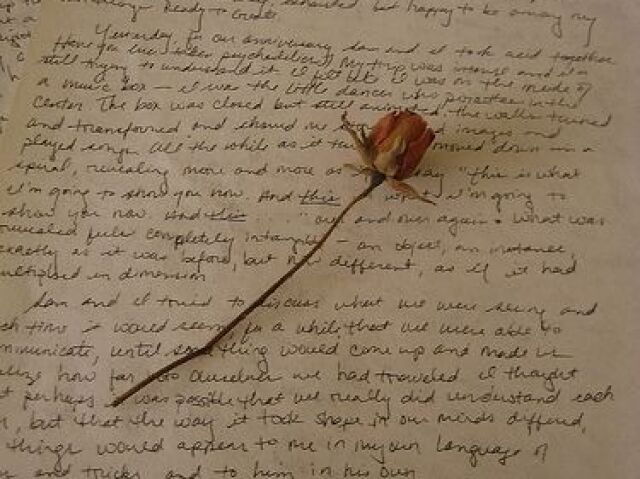 Ready to create
exhausted but happy to be among my
Yesterday for our anniversary Sam and I took acid together
trip was intense and I'm
still trying to understand it I felt like I was on the inside of
a music box – I was the little dancer who in the
center. The box was closed but still animated. The walls turned
and transformed and showed me images and
played songs. All the while as it moved down in a
spiral, revealing more and more as say "this is what
I'm going to show you now. And this I'm going to
show you now. And this " over and over again. What was
revealed felt completely – an object, an instance,
exactly as it was before, but now different, as if it had
in dimension
Sam and I tried to discuss what we were seeing and
time it would seem for a while that we were able to
until something would come up and made us
how far into ourselves we had traveled I thought
perhaps it was possible that we really did understand each
, but that the way it took shape in our minds differed,
things would appear to me in my own language of
and tricks and to him in his own